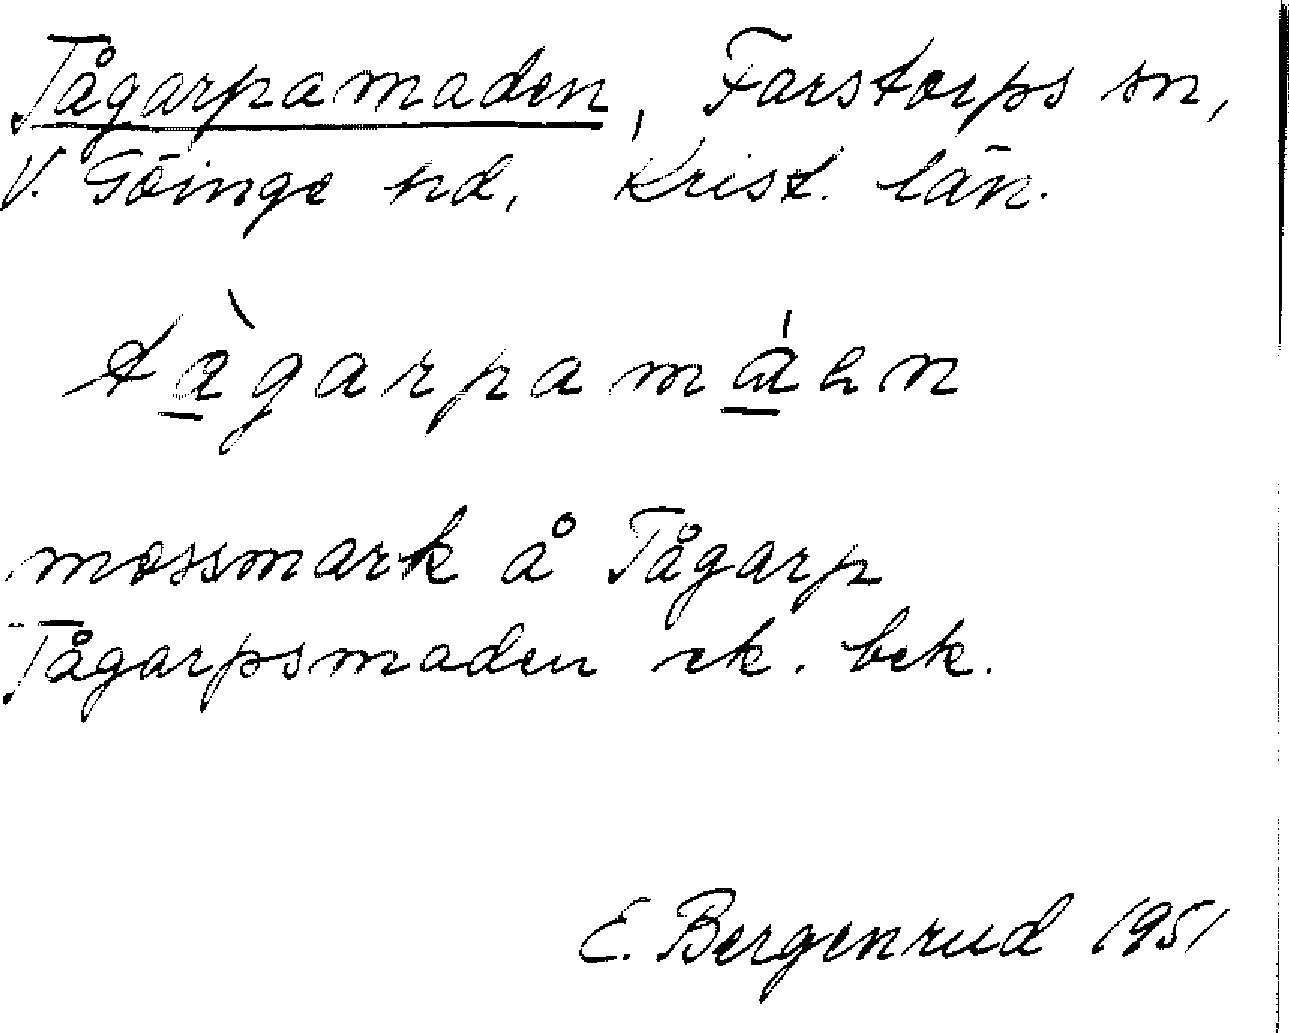 Tågarpamaden, Farstorps sn,
V. Göinge hd, Krist. län.
tàgarpamáen
mossmark å Tågarp
Tågarpsmaden ek. bek.
E. Bergenrud 1951